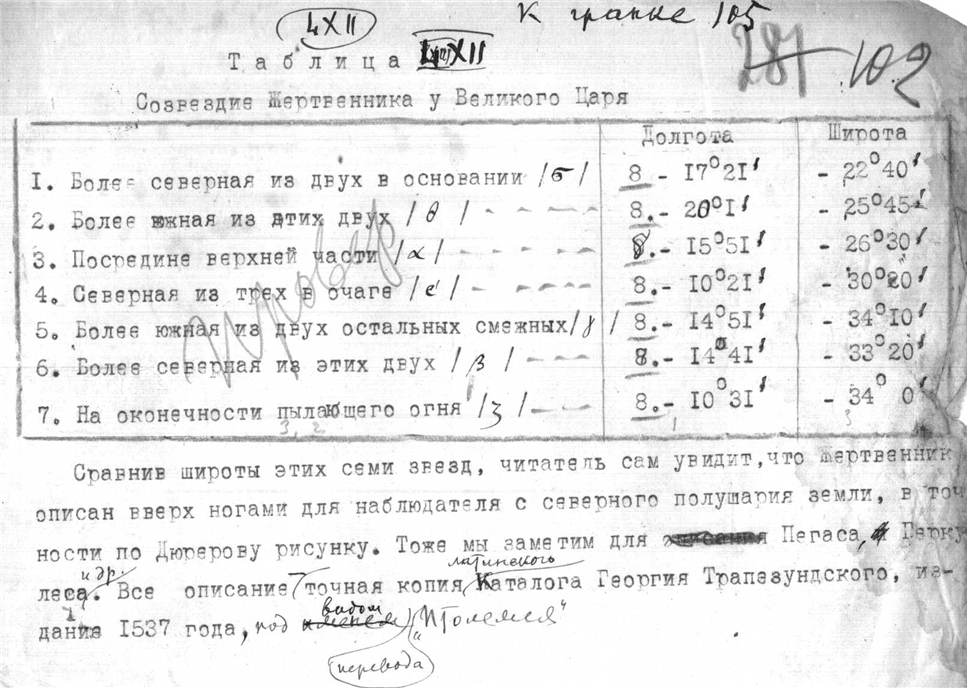 LXII К гранке 105
Таблица LXII 281 102
Созвездие Жертвенника у Великого Царя
Долгота Широта
1. Более северная из двух в основании /σ/ 8 - 17°21' - 22°40'
2. Более южная из этих двух /θ/ - - - - 8.- 20°1' - 25°45'
3. Посредине верхней части /α/ - - - - 8.- 15°51' - 26°30'
4. Северная из трех в очаге /ε/ - - - - 8.- 10°21' - 30°20'
5. Более южная из двух остальных смежных/γ/ 8.- 14°51' - 34°10'
6. Более северная из этих двух /β/ - - - 8.- 14°41' - 33°20'
7. На оконечности пылающего огня /ζ/ - - - 8.- 10°31' - 34° 0'
Провер
Сравнив широты этих семи звезд, читатель сам увидит,что Жертвенник
описан вверх ногами для наблюдателя с северного полушария земли, в точ
ности по Дюрерову рисунку. Тоже мы заметим для Пегаса, Герку
леса и др. Все описание точная копия латинского Каталога Георгия Трапезундского, из-
дания 1537 года, под видом перевода "Птолемея"